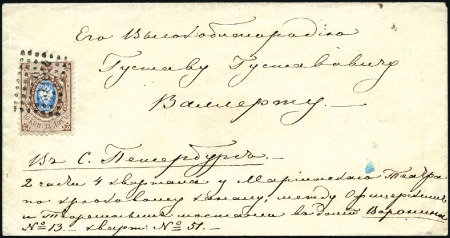 Его Высокоблагородію
Густаву Густавовичу
Валлерту.
Въ С. Петербургѣ
2 части 4 квартала у Маріинскаго Театра
по крюковому каналу, между Офицерскимъ
и Торговымъ мостами въ домѣ Воронина
№ 13. кварт. № 51.